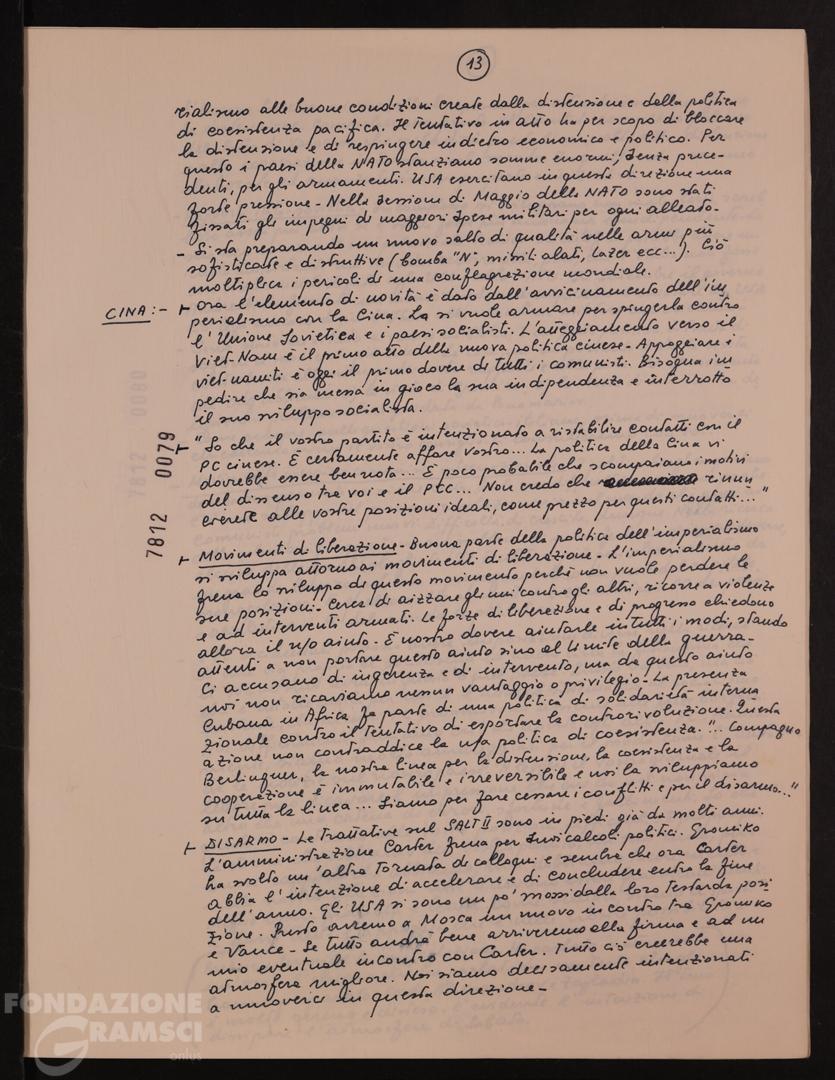 13
cialismo alle buone condizioni create dalla distensione e dalla politica
di coesistenza pacifica. Il tentativo in atto ha per scopo di bloccare
la distensione e di respingere indietro economico e politico. Per
questo i paesi della NATO stanziano somme enormi, senza prece-
denti, per gli armamenti. USA esercitano in questa direzione una
forte pressione - Nella sessione di Maggio della NATO sono stati
fissati gli impegni di maggiori spese militari per ogni alleato.
- Si sta preparando un nuovo salto di qualità nelle armi più
sofisticate e distruttive (bomba "N", missili alati, lazer ecc...). Ciò
moltiplica i pericoli di una conflagrazione mondiale.
CINA: - + Ora l'elemento di novità è dato dall'avvicinamento dell'im
perialismo con la Cina. La si vuole armare per spingerla contro
l'Unione Sovietica e i paesi socialisti. L'atteggiamento verso il
Viet-Nam è il primo atto della nuova politica cinese - Appoggiare i
viet-namiti è oggi il primo dovere di tutti i comunisti. Bisogna im
pedire che sia messa in gioco la sua indipendenza e interrotto
il suo sviluppo socialista.
+ "So che il vostro partito è intenzionato a ristabilire contatti con il
PC cinese. È certamente affare vostro... La politica della Cina vi
dovrebbe essere ben nota... È poco probabile che scompaiano i motivi
del dissenso tra voi e il PCC... Non credo che rinun
cerete alle vostre posizioni ideali, come prezzo per questi contatti..."
+ Movimenti di liberazione - Buona parte della politica dell'imperialismo
si sviluppa attorno ai movimenti di liberazione - L'imperialismo
frena lo sviluppo di questo movimento perché non vuole perdere le
sue posizioni - Cerca di aizzare gli uni contro gli altri, ricorre a violenze
e ad interventi armati. Le forze di liberazione e di progresso chiedono
allora il n/o aiuto - È nostro dovere aiutarle in tutti i modi, stando
attenti a non portare questo aiuto sino al limite della guerra -
Ci accusano di ingerenza e di intervento, ma da questo aiuto
noi non ricaviamo nessun vantaggio o privilegio - La presenza
Cubana in Africa fa parte di una politica di solidarietà interna
zionale contro il tentativo di esportare la controrivoluzione. Questa
azione non contraddice la n/a politica di coesistenza. "... Compagno
Berlinguer, la nostra linea per la distensione, la coesistenza e la
cooperazione è immutabile e irreversibile e noi la sviluppiamo
su tutta la linea... Siamo per fare cessare i conflitti e per il disarmo..."
+ DISARMO - Le trattative sul SALT II sono in piedi già da molti anni.
L'amministrazione Carter frena per suoi calcoli politici. Gromiko
ha svolto un'altra tornata di colloqui e sembra che ora Carter
abbia l'intenzione di accelerare e di concludere entro la fine
dell'anno. Gli USA si sono un po' mossi dalla loro testarda posi
zione. Presto avremo a Mosca un nuovo incontro tra Gromiko
e Vance - Se tutto andrà bene arriveremo alla firma e ad un
mio eventuale incontro con Carter. Tutto ciò creerebbe una
atmosfera migliore. Noi siamo decisamente intenzionati
a muoverci in questa direzione -
7812 0079
FONDAZIONE
GRAMSCI
onlus